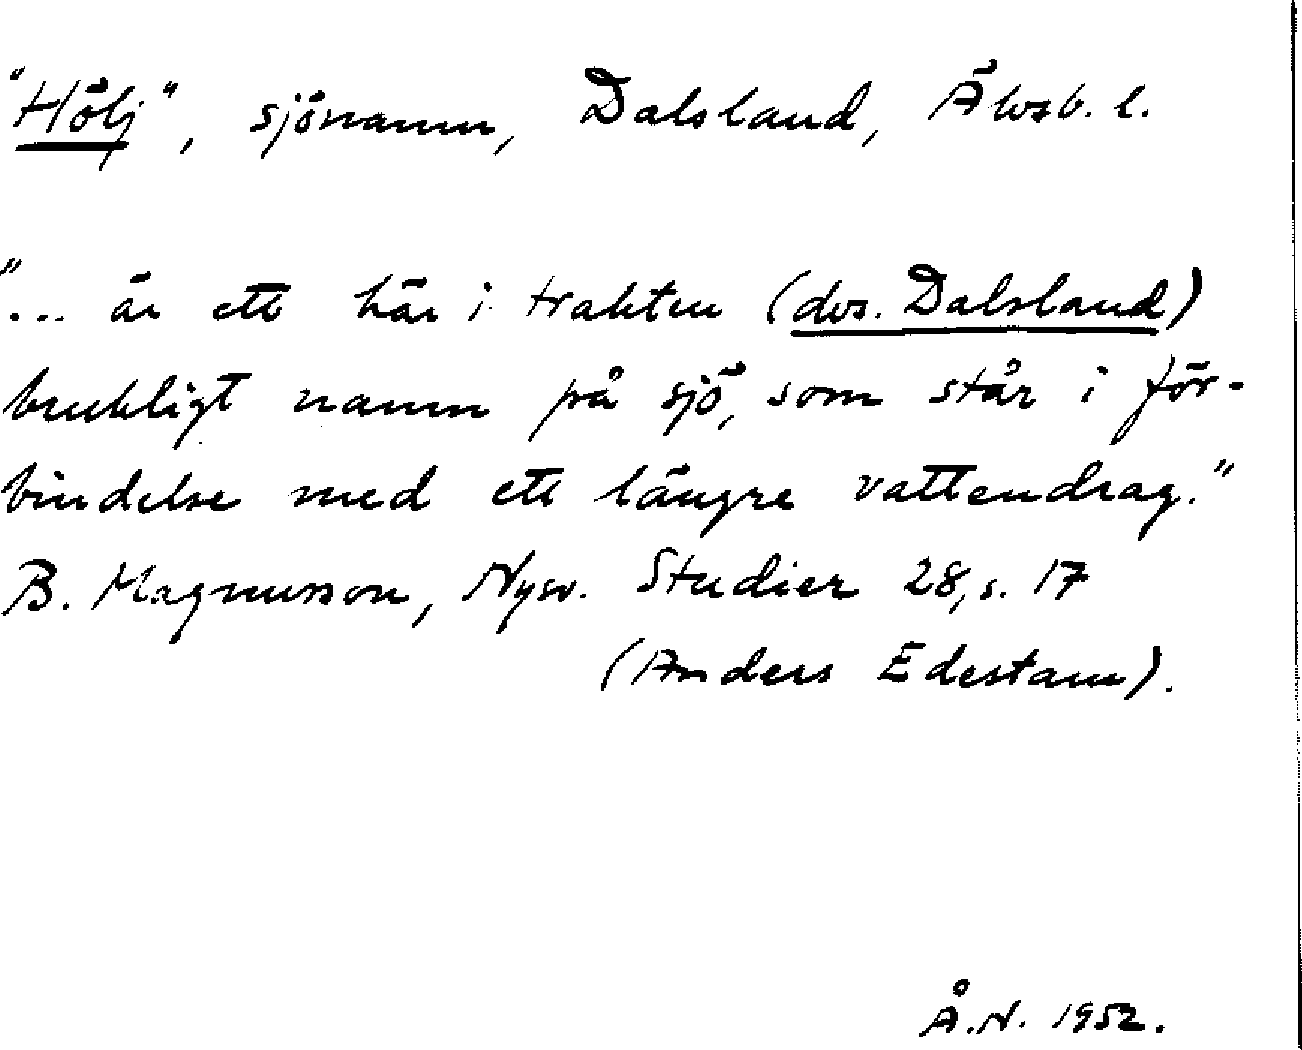 "Hölj", sjönamn, Dalsland, Älvsb. l.
"... är ett här i trakten (dvs. Dalsland)
brukligt namn på sjö, som står i för-
bindelse med ett längre vattendrag."
B. Magnusson, Nysv. Studier 28, s. 17
(Anders Edestam).
Å.N. 1952.